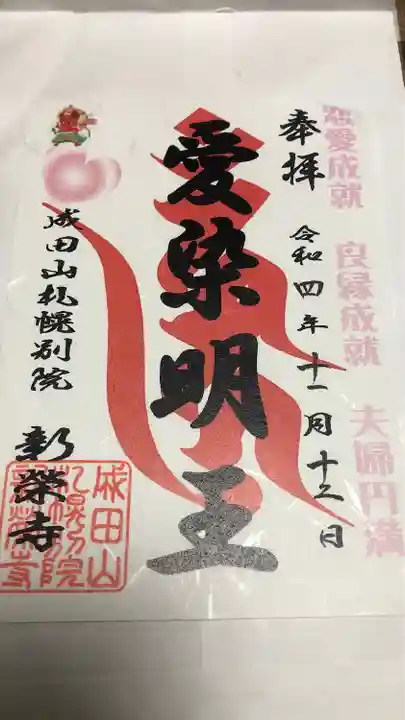 恋愛成就 良縁成就 夫婦円満
奉拝
令和四年十一月十三日
愛染明王
成田山札幌別院
新栄寺
成田山
札幌別院
新栄寺